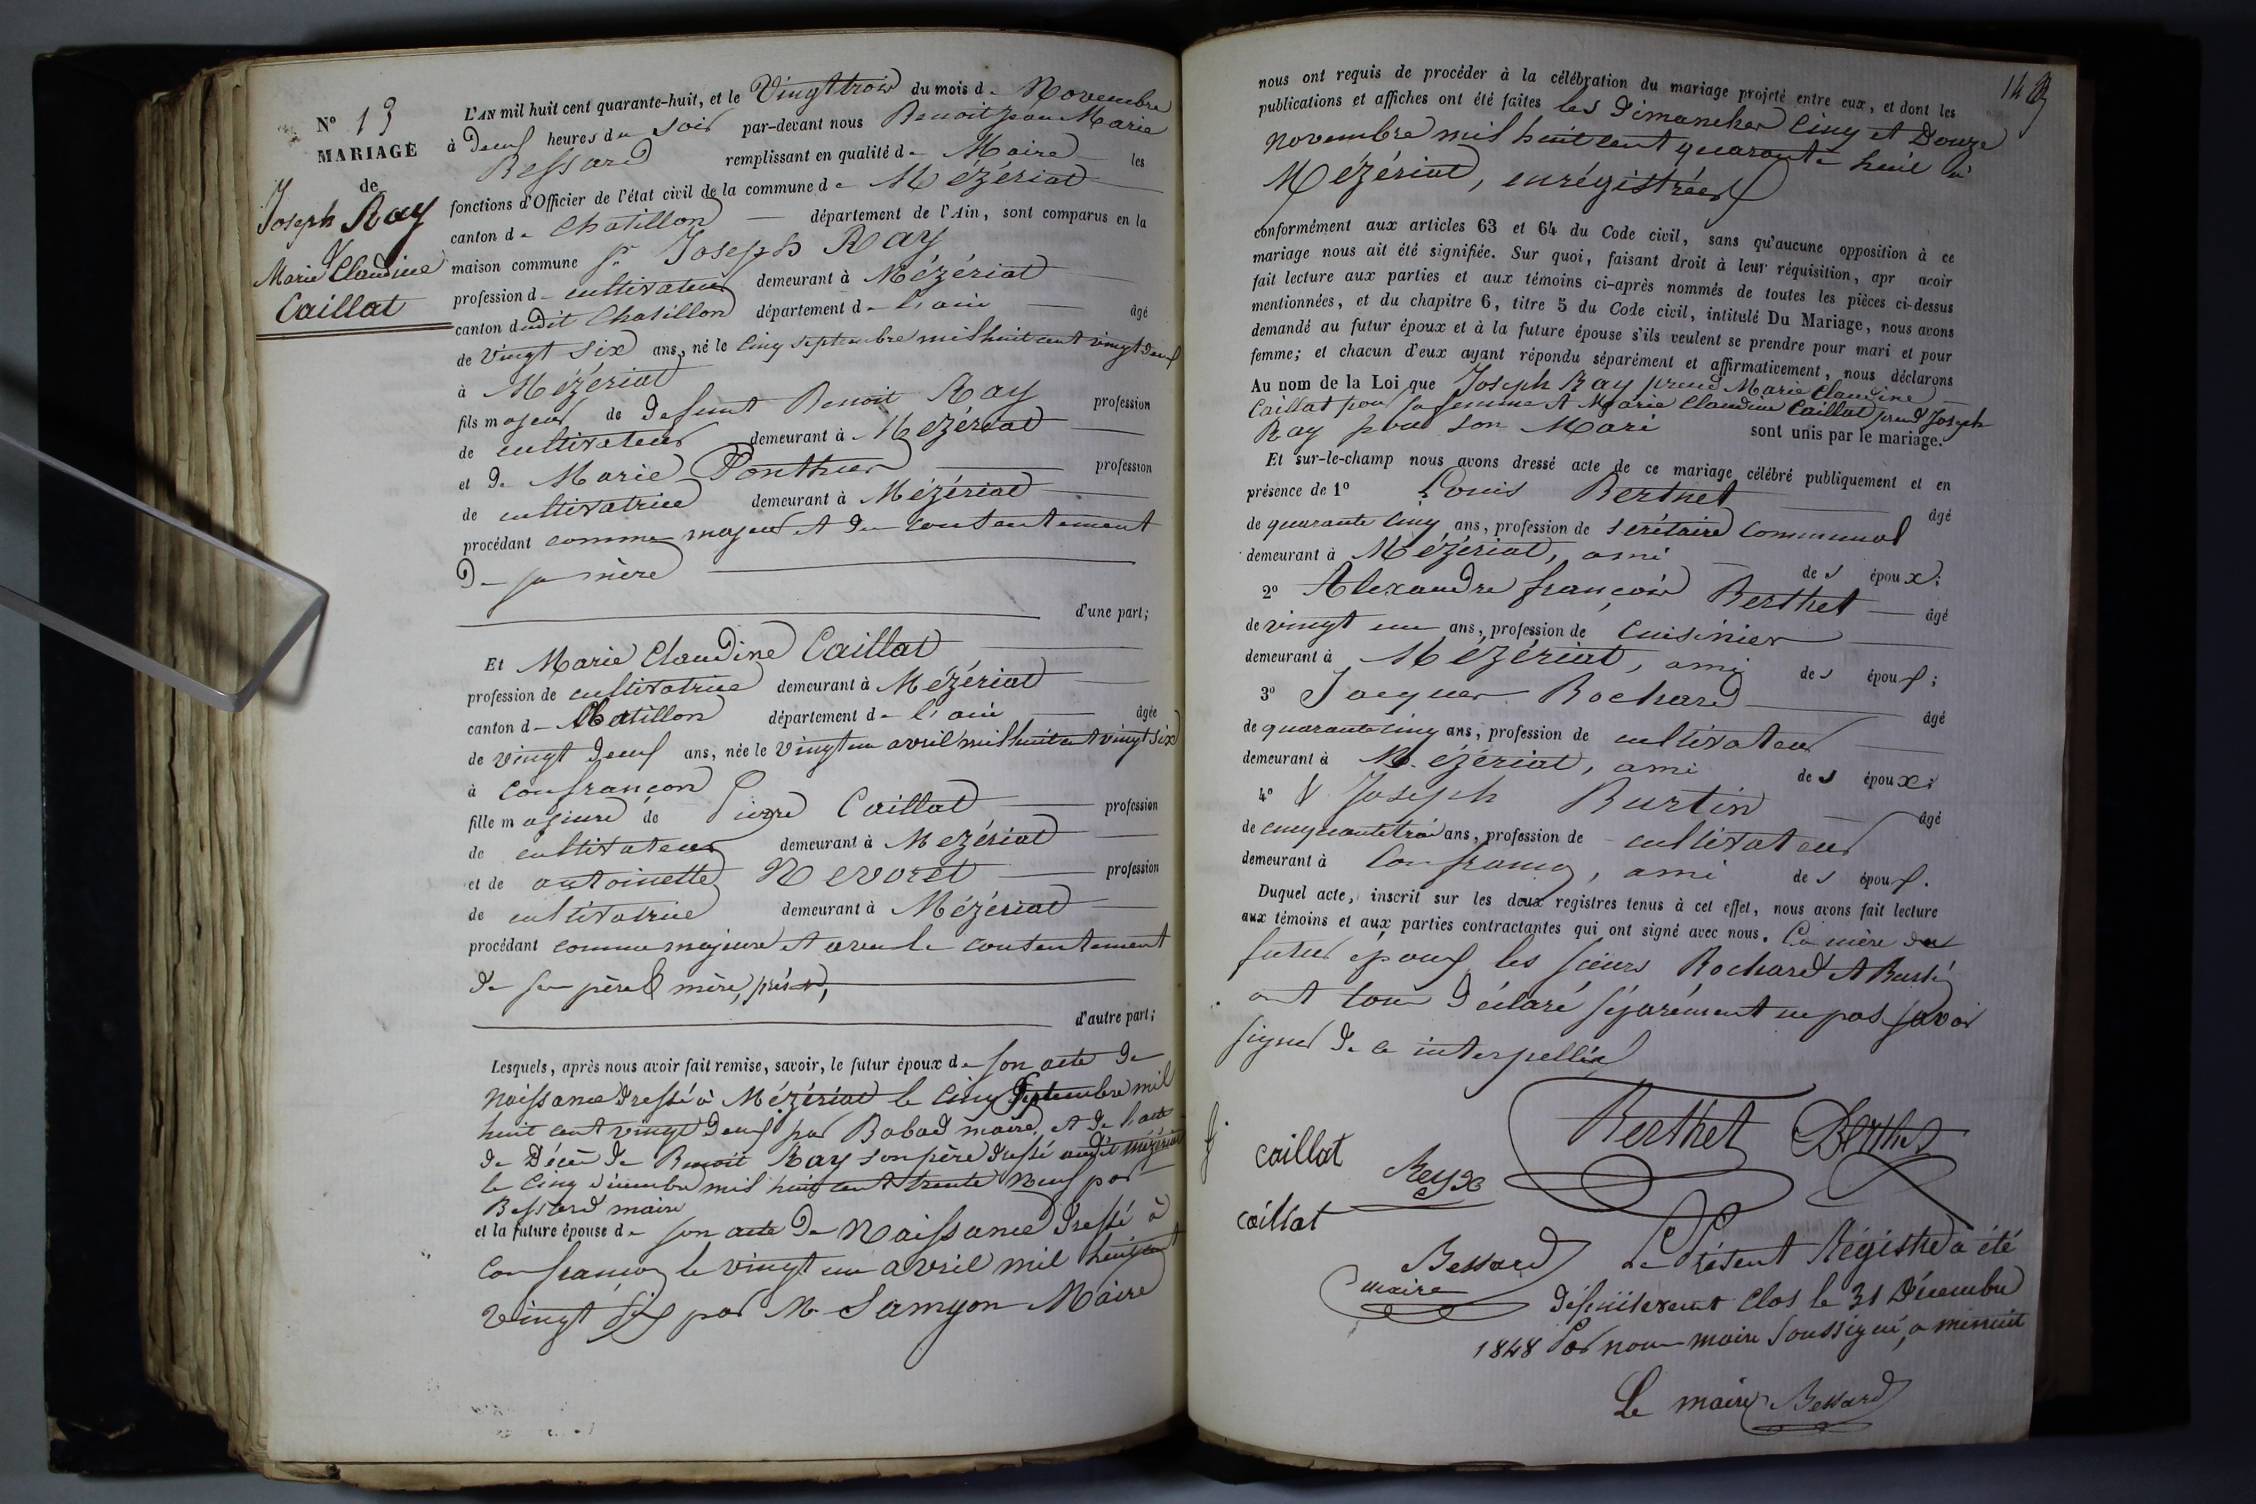 N° 13
MARIAGE
de
Joseph Ray
&
Marie Claudine
Caillat
L'AN mil huit cent quarante-huit, et le Vingt trois du mois de Novembre
à Deux heures du soir par-devant nous Benoit Marie
Bessard remplissant en qualité de Maire les
fonctions d'Officier de l'état civil de la commune de Mézériat
canton de Chatillon département de l'Ain, sont comparus en la
maison commune Sr Joseph Ray
profession de cultivateur demeurant à Mézériat
canton dudit Chatillon département de l'ain âgé
de Vingt six ans, né le cinq septembre mil huit cent vingt deux
à Mézériat
fils majeur de defunt Benoit Ray profession
de cultivateur demeurant à Mézériat
et de Marie Ponthus profession
de cultivatrice demeurant à Mézériat
procédant comme majeur et du consentement
De sa mère
d'une part;
Et Marie Claudine Caillat
profession de cultivatrice demeurant à Mézériat
canton de Chatillon département de l'ain âgée
de vingt deux ans, née le vingt un avril mil huit cent vingt six
à Confrançon
fille majeure de Pierre Caillat profession
de cultivateur demeurant à Mézériat
et de antoinette Nevoret profession
de cultivatrice demeurant à Mézériat
procédant comme majeure et avec le consentement
de ses père & mère, présents,
d'autre part;
Lesquels, après nous avoir fait remise, savoir, le futur époux de son acte de
Naissance dressé à Mézériat le Cinq Septembre mil
huit cent vingt deux par Babad maire, et de l'acte
de Décès de Benoit Ray son père dressé audit mézériat
le Cinq décembre mil huit cent trente neuf par
Bessard maire
et la future épouse de son acte de Naissance dressé à
Confrançon le vingt un avril mil huit cent
vingt six par Mr Samyon Maire
nous ont requis de procéder à la célébration du mariage projeté entre eux, et dont les
publications et affiches ont été faites les Dimanches Cinq et Douze
novembre mil huit cent quarante huit à
Mézériat, enrégistrées
conformément aux articles 63 et 64 du Code civil, sans qu'aucune opposition à ce
mariage nous ait été signifiée. Sur quoi, faisant droit à leur réquisition, apr avoir
fait lecture aux parties et aux témoins ci-après nommés de toutes les pièces ci-dessus
mentionnées, et du chapitre 6, titre 5 du Code civil, intitulé Du Mariage, nous avons
demandé au futur époux et à la future épouse s'ils veulent se prendre pour mari et pour
femme; et chacun d'eux ayant répondu séparément et affirmativement, nous déclarons
Au nom de la Loi que Joseph Ray prend Marie Claudine
Caillat pour sa femme et Marie Claudine Caillat prend Joseph
Ray pour son Mari sont unis par le mariage.
Et sur-le-champ nous avons dressé acte de ce mariage célébré publiquement et en
présence de 1° Louis Berthet âgé
de quarante cinq ans, profession de secrétaire communal
demeurant à Mézériat, ami des époux;
2° Alexandre françois Berthet âgé
de vingt un ans, profession de cuisinier
demeurant à Mézériat, ami des époux;
3° Jacques Rochard âgé
de quarante cinq ans, profession de cultivateur
demeurant à Mézériat, ami des époux;
4° & Joseph Burtin âgé
de cinquante trois ans, profession de cultivateur
demeurant à Confrançon, ami des époux.
Duquel acte, inscrit sur les deux registres tenus à cet effet, nous avons fait lecture
aux témoins et aux parties contractantes qui ont signé avec nous. La mère du
futur époux, les sieurs Rochard et Burtin
ont tous déclaré séparément ne pas savoir
signer de ce interpellés
Berthet Berthet
caillat Rey
caillat
Bessard
maire
Le Présent Régistre a été
définitivement clos le 31 Décembre
1848 Par nous maire soussigné, a minuit
Le maire Bessard